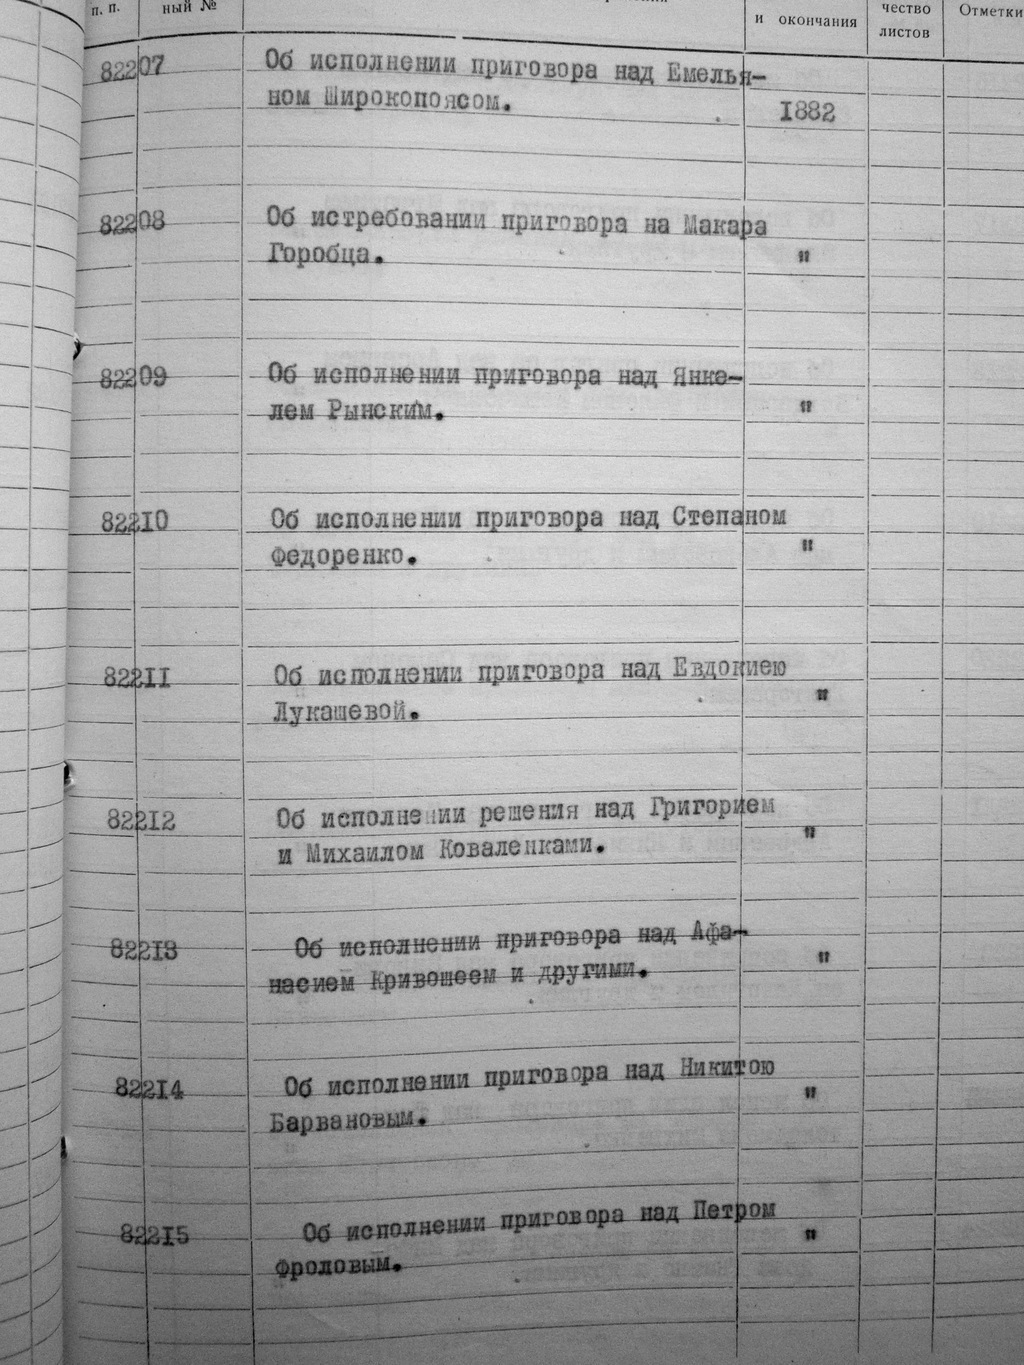 п. п.
ный №
и окончания
чество
листов
Отметки
82207 Об исполнении приговора над Емелья-
ном Широкопоясом.
1882
82208 Об истребовании приговора на Макара
Горобца. "
82209 Об исполнении приговора над Янке-
лем Рынским. "
82210 Об исполнении приговора над Степаном
Федоренко. "
82211 Об исполнении приговора над Евдокиею
Лукашевой. "
82212 Об исполнении решения над Григорием
и Михаилом Коваленками. "
82213 Об исполнении приговора над Афа-
насием Кривошеем и другими. "
82214 Об исполнении приговора над Никитою
Барвановым. "
82215 Об исполнении приговора над Петром
Фроловым. "